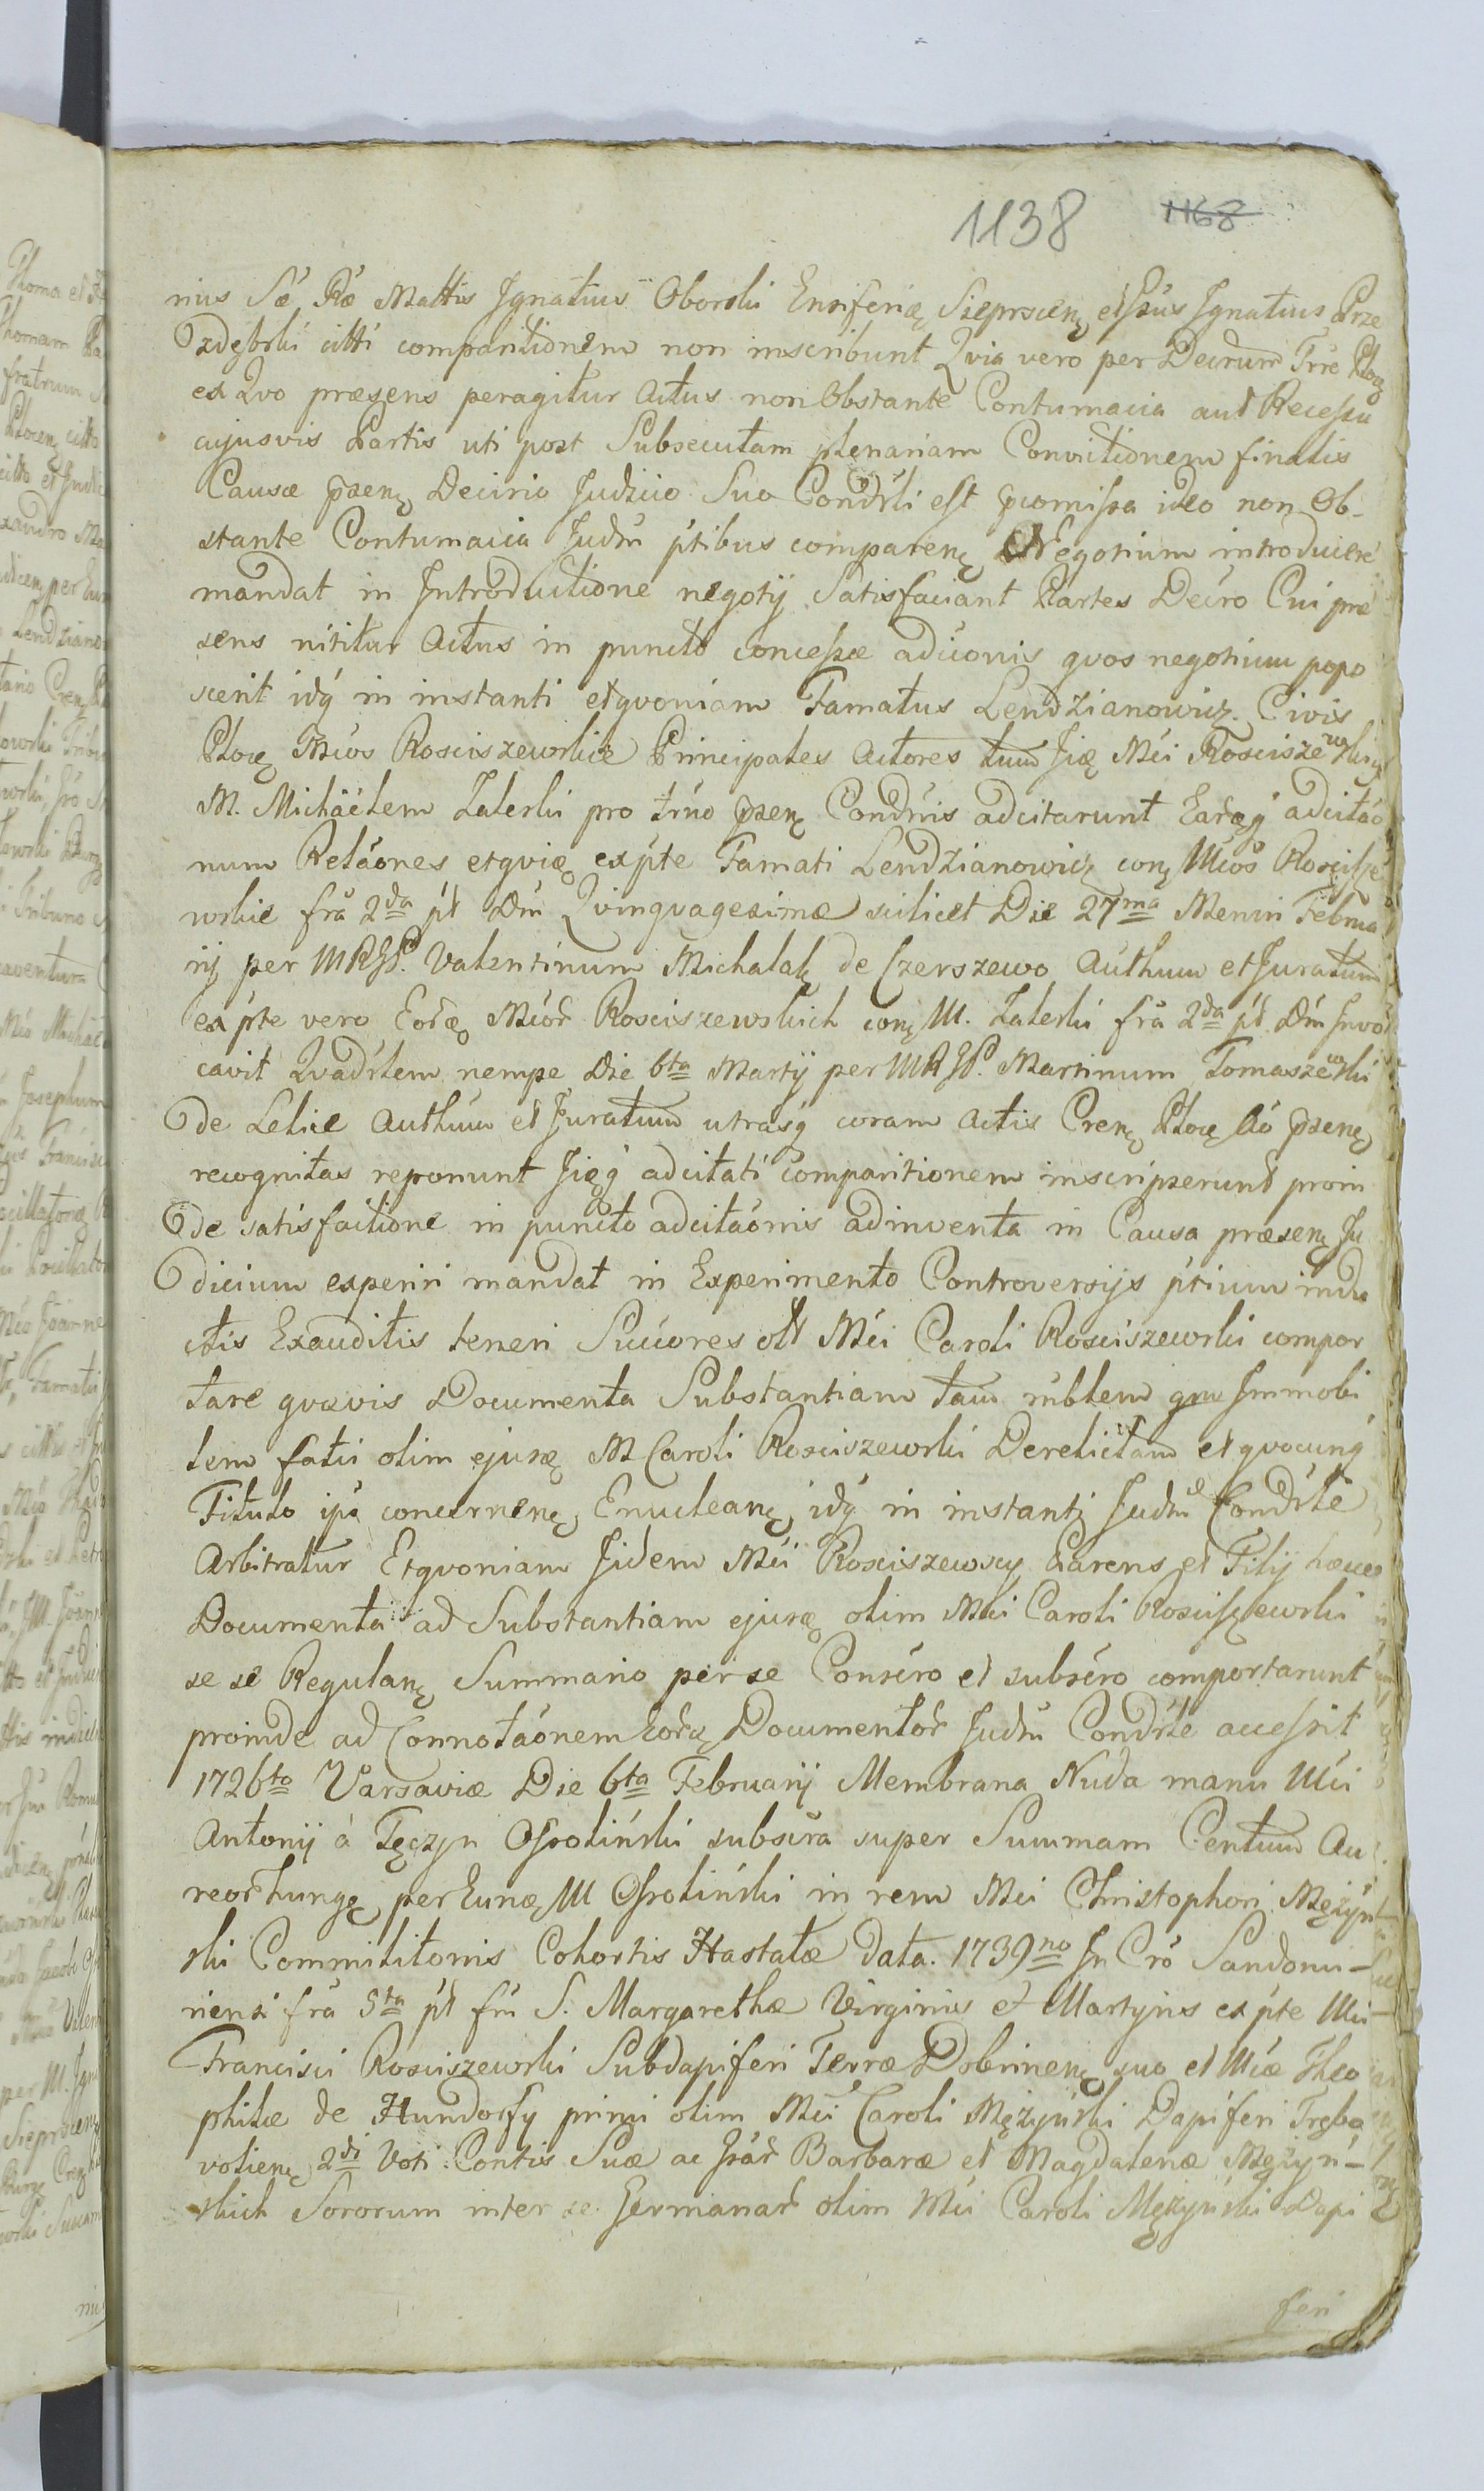 1138 1168
nius Sæ Ræ Mattis Ignatius Oborski Ensiferię Sieprscenę et Gsus Ignatius Prze
zdębski citti comparitionem non inscribunt Qvia vero per Decrum Trre Ploę
ex Qvo præsens peragitur Actus non Obstante Contumacia aut Recessu
cujusvis Partis uti post Subsecutam plenariam Convictionem finalis
Causæ pzenę Decirio Judicio Suo Condrli est promissa ideo non Ob-
stante Contumacia Judm ptibus comparenę Negotium introducere
mandat in Introductione negotij Satisfaciant Partes Decro Cui præ
sens nititur Actus in puncto concessæ adcionis qvos negotium popo
scerit idq in instanti etqvoniam Famatus Lendzianowicz Civis
Plocę Mcos Rosciszewskie Principales Actores tum Jię Mci Rosciszewscy
M. Michäelem Zaleski pro trno pzenę Condmis adcitarunt Earęq adcitao
num Relaones etqvię ex pte Famati Lendzianowicz conę Mcos Roscisze
wskie fra 2da pt Dm Qvinqvagesimæ scilicet Die 27ma Mensis Februa
rij per MRGP. Valentinum Michalak de Czerszewo Authum et Juratum
ex pte vero Eorę Mcor Rosciszewskich conę M. Zaleski fra 2da pt Dm Invo
cavit Qvadrlem nempe Die 6ta Martij per MRGP. Martinum Tomaszewski
de Lelice Authum et Juratum utrasq coram Actis Crenę Plocę Ao pzenę
recognitas reponunt Jięq adcitati comparitionem inscripserunt proin
de satisfactione in puncto adcitaonis adinventa in Causa præsenę Ju
dicium experiri mandat in Experimento Controversijs ptium indu
ctis Exauditis teneri Succores olt Mci Caroli Rosciszewski compor
tare qvævis Documenta Substantiam tam mblem qm Immobi
lem fatti olim ejusę M Caroli Rosciszewski Derelictam et qvocunq
Titulo ipa concernenę Enucleanę idq in instanti Judm Condrle
Arbitratur Etqvoniam Jidem Mci Rosciszewscy Parens et Filij hæcce
Documenta ad Substantiam ejusę olim Mci Caroli Rosciszewski
se se Regulanę Summario per se Conscro et subscro comportarunt
proinde ad Connotaonem Eorę Documentor Judm Condrle accessit
1726to Varsaviæ Die 6ta Februarij Membrana Nuda manu Mci
Antonij à Tęczyn Ossoliński subscra super Summam Centum Au
reor hungę per Eunę M Ossoliński in rem Mci Christophori Mężyń
ski Commilitonis Cohortis Hastatæ data. 1739no In Cro Sandomi-
riensi fra 5ta pt fm S. Margarethæ Virginis et Martyris ex pte Mci
Francisci Rosciszewski Subdapiferi Terræ Dobrinenę suo et Mcæ Theo
philæ de Hundorfy primi olim Mci Caroli Mężyński Dapiferi Tręba
volienę 2di Voti Contis Suæ ac Grar Barbaræ et Magdalenæ Mężyń-
skich Sororum inter se Germanar olim Mci Caroli Mężyński Dapi
feri